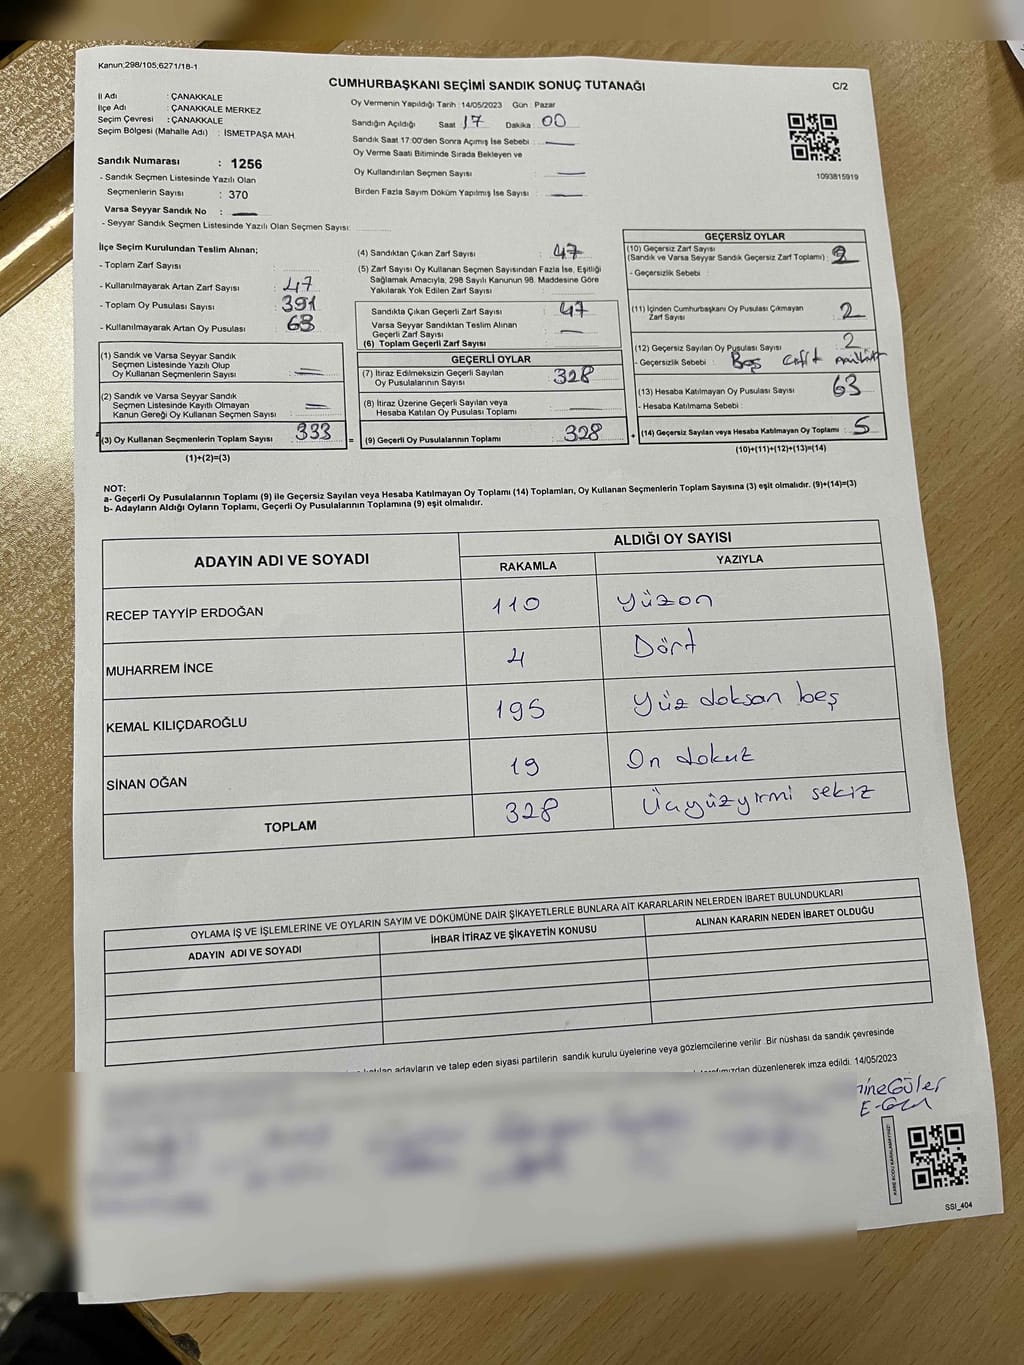 Kanun;298/105;6271/18-1
CUMHURBAŞKANI SEÇİMİ SANDIK SONUÇ TUTANAĞI
C/2
İl Adı : ÇANAKKALE
İlçe Adı : ÇANAKKALE MERKEZ
Seçim Çevresi : ÇANAKKALE
Seçim Bölgesi (Mahalle Adı) : İSMETPAŞA MAH.
Oy Vermenin Yapıldığı Tarih : 14/05/2023 Gün : Pazar
Sandığın Açıldığı Saat 17 Dakika 00
Sandık Saat 17:00'den Sonra Açımış İse Sebebi :
Oy Verme Saati Bitiminde Sırada Bekleyen ve
Oy Kullandırılan Seçmen Sayısı :
Birden Fazla Sayım Döküm Yapılmış İse Sayısı :
1093815919
Sandık Numarası : 1256
- Sandık Seçmen Listesinde Yazılı Olan
Seçmenlerin Sayısı : 370
Varsa Seyyar Sandık No :
- Seyyar Sandık Seçmen Listesinde Yazılı Olan Seçmen Sayısı:
İlçe Seçim Kurulundan Teslim Alınan;
- Toplam Zarf Sayısı :
- Kullanılmayarak Artan Zarf Sayısı : 47
- Toplam Oy Pusulası Sayısı : 391
- Kullanılmayarak Artan Oy Pusulası : 63
(1) Sandık ve Varsa Seyyar Sandık
Seçmen Listesinde Yazılı Olup
Oy Kullanan Seçmenlerin Sayısı :
(2) Sandık ve Varsa Seyyar Sandık
Seçmen Listesinde Kayıtlı Olmayan
Kanun Gereği Oy Kullanan Seçmen Sayısı :
(3) Oy Kullanan Seçmenlerin Toplam Sayısı : 333
(1)+(2)=(3)
(4) Sandıktan Çıkan Zarf Sayısı : 47
(5) Zarf Sayısı Oy Kullanan Seçmen Sayısından Fazla İse, Eşitliği
Sağlamak Amacıyla, 298 Sayılı Kanunun 98. Maddesine Göre
Yakılarak Yok Edilen Zarf Sayısı :
Sandıkta Çıkan Geçerli Zarf Sayısı : 47
Varsa Seyyar Sandıktan Teslim Alınan
Geçerli Zarf Sayısı :
(6) Toplam Geçerli Zarf Sayısı :
GEÇERLİ OYLAR
(7) İtiraz Edilmeksizin Geçerli Sayılan
Oy Pusulalarının Sayısı : 328
(8) İtiraz Üzerine Geçerli Sayılan veya
Hesaba Katılan Oy Pusulası Toplamı :
= (9) Geçerli Oy Pusulalarının Toplamı : 328
GEÇERSİZ OYLAR
(10) Geçersiz Zarf Sayısı
(Sandık ve Varsa Seyyar Sandık Geçersiz Zarf Toplamı) :
- Geçersizlik Sebebi :
(11) İçinden Cumhurbaşkanı Oy Pusulası Çıkmayan
Zarf Sayısı : 2
(12) Geçersiz Sayılan Oy Pusulası Sayısı : 2
- Geçersizlik Sebebi : Boş çift
(13) Hesaba Katılmayan Oy Pusulası Sayısı : 63
- Hesaba Katılmama Sebebi :
+ (14) Geçersiz Sayılan veya Hesaba Katılmayan Oy Toplamı : 5
(10)+(11)+(12)+(13)=(14)
NOT:
a- Geçerli Oy Pusulalarının Toplamı (9) ile Geçersiz Sayılan veya Hesaba Katılmayan Oy Toplamı (14) Toplamları, Oy Kullanan Seçmenlerin Toplam Sayısına (3) eşit olmalıdır. (9)+(14)=(3)
b- Adayların Aldığı Oyların Toplamı, Geçerli Oy Pusulalarının Toplamına (9) eşit olmalıdır.
ADAYIN ADI VE SOYADI
ALDIĞI OY SAYISI
RAKAMLA YAZIYLA
RECEP TAYYİP ERDOĞAN 110 Yüzon
MUHARREM İNCE 4 Dört
KEMAL KILIÇDAROĞLU 195 Yüz doksan beş
SİNAN OĞAN 19 On dokuz
TOPLAM 328 Üçyüzyirmi sekiz
OYLAMA İŞ VE İŞLEMLERİNE VE OYLARIN SAYIM VE DÖKÜMÜNE DAİR ŞİKAYETLERLE BUNLARA AİT KARARLARIN NELERDEN İBARET BULUNDUKLARI
ADAYIN ADI VE SOYADI
İHBAR İTİRAZ VE ŞİKAYETİN KONUSU
ALINAN KARARIN NEDEN İBARET OLDUĞU
adayların ve talep eden siyasi partilerin sandık kurulu üyelerine veya gözlemcilerine verilir. Bir nüshası da sandık çevresinde
düzenlenerek imza edildi. 14/05/2023
Güler
KARE KODU KARALAMAYINIZ!
SSI_404